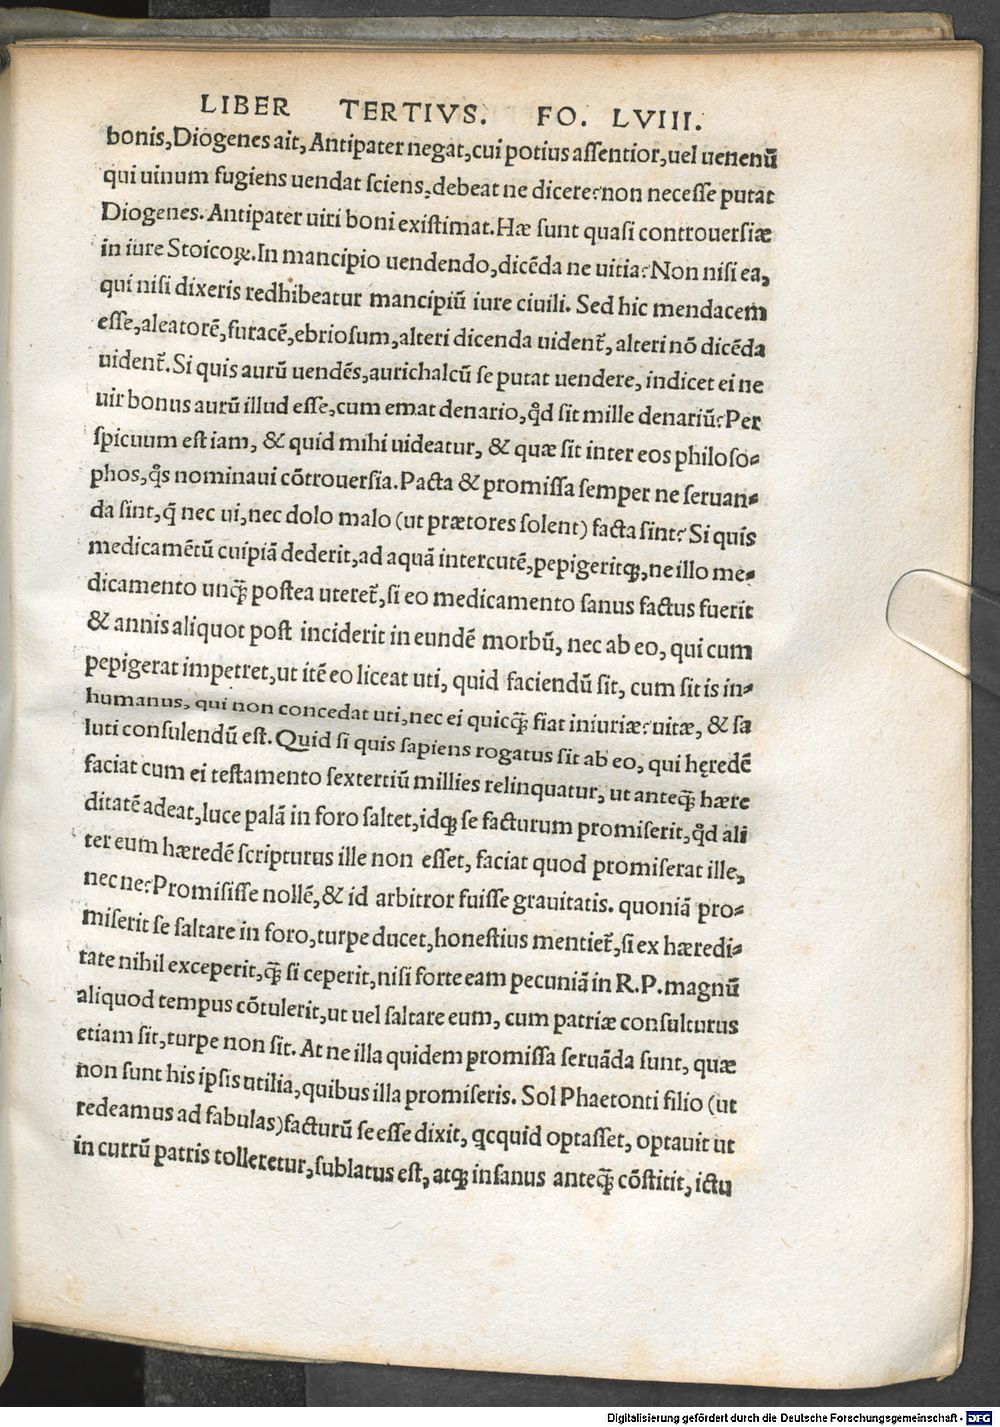 LIBER TERTIVS. FO. LVIII.
bonis,Diogenes ait, Antipater negat,cui potius assentior,uel uenenũ
qui uinum fugiens uendat sciens,debeat ne dicere?non necesse putat
Diogenes. Antipater uiri boni existimat.Hæ sunt quasi controuersiæ
in iure Stoicoꝝ.In mancipio uendendo,dicẽda ne uitia?Non nisi ea,
qui nisi dixeris redhibeatur mancipiũ iure ciuili. Sed hic mendacem
esse,aleatorẽ,furacẽ,ebriosum,alteri dicenda uident᷑, alteri nõ dicẽda
uident᷑.Si quis aurũ uendẽs,aurichalcũ se putat uendere, indicet ei ne
uir bonus aurũ illud esse,cum emat denario,qd̛ sit mille denariũ?Per
spicuum est iam, & quid mihi uideatur, & quæ sit inter eos philoso-
phos,q̃s nominaui cõtrouersia.Pacta & promissa semper ne seruan-
da sint,q̃ nec ui,nec dolo malo (ut prætores solent) facta sint? Si quis
medicamẽtũ cuipiã dederit,ad aquã intercutẽ,pepigeritqꝫ,ne illo me-
dicamento unqꝫ̃ postea uteret᷑,si eo medicamento sanus factus fuerit
& annis aliquot post inciderit in eundẽ morbũ, nec ab eo, qui cum
pepigerat impetret,ut itẽ eo liceat uti, quid faciendũ sit, cum sit is in-
humanus, qui non concedat uti,nec ei quicqꝫ̃ fiat iniuriæ?uitæ, & sa
luti consulendũ est. Quid si quis sapiens rogatus sit ab eo, qui hęredẽ
faciat cum ei testamento sextertiũ millies relinquatur, ut anteqꝫ̃ hære
ditatẽ adeat,luce palã in foro saltet,idqꝫ se facturum promiserit,qd̛ ali
ter eum hæredẽ scripturus ille non esset, faciat quod promiserat ille,
nec ne?Promisisse nollẽ,& id arbitror fuisse grauitatis. quoniã pro-
miserit se saltare in foro,turpe ducet,honestius mentiet᷑,si ex hæredi-
tate nihil exceperit,qꝫ̃ si ceperit,nisi forte eam pecuniã in R.P.magnũ
aliquod tempus cõtulerit,ut uel saltare eum, cum patriæ consulturus
etiam sit,turpe non sit. At ne illa quidem promissa seruãda sunt, quæ
non sunt his ipsis utilia,quibus illa promiseris. Sol Phaetonti filio (ut
redeamus ad fabulas)facturũ se esse dixit, qcquid optasset, optauit ut
in currũ patris tolleretur,sublatus est, atqꝫ insanus anteqꝫ̃ cõstitit, ictu
Digitalisierung gefördert durch die Deutsche Forschungsgemeinschaft - DFG